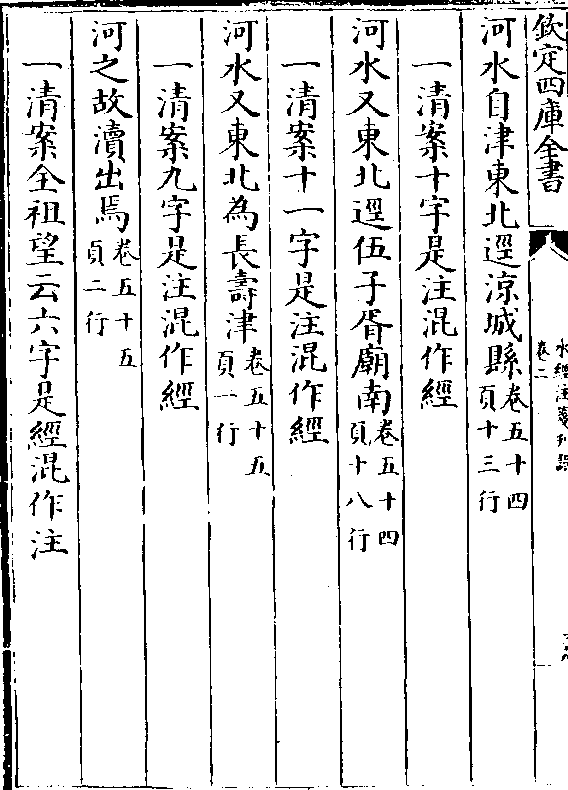 欽定四庫全書
水經注箋刊誤
卷二
河水自津東北逕涼城縣卷五十四頁十三行
一清案十字是注混作經
河水又東北逕伍子胥廟南卷五十四頁十八行
一清案十一字是注混作經
河水又東北為長壽津卷五十五頁一行
一清案九字是注混作經
河之故瀆出焉卷五十五頁二行
一清案全祖望云六字是經混作注